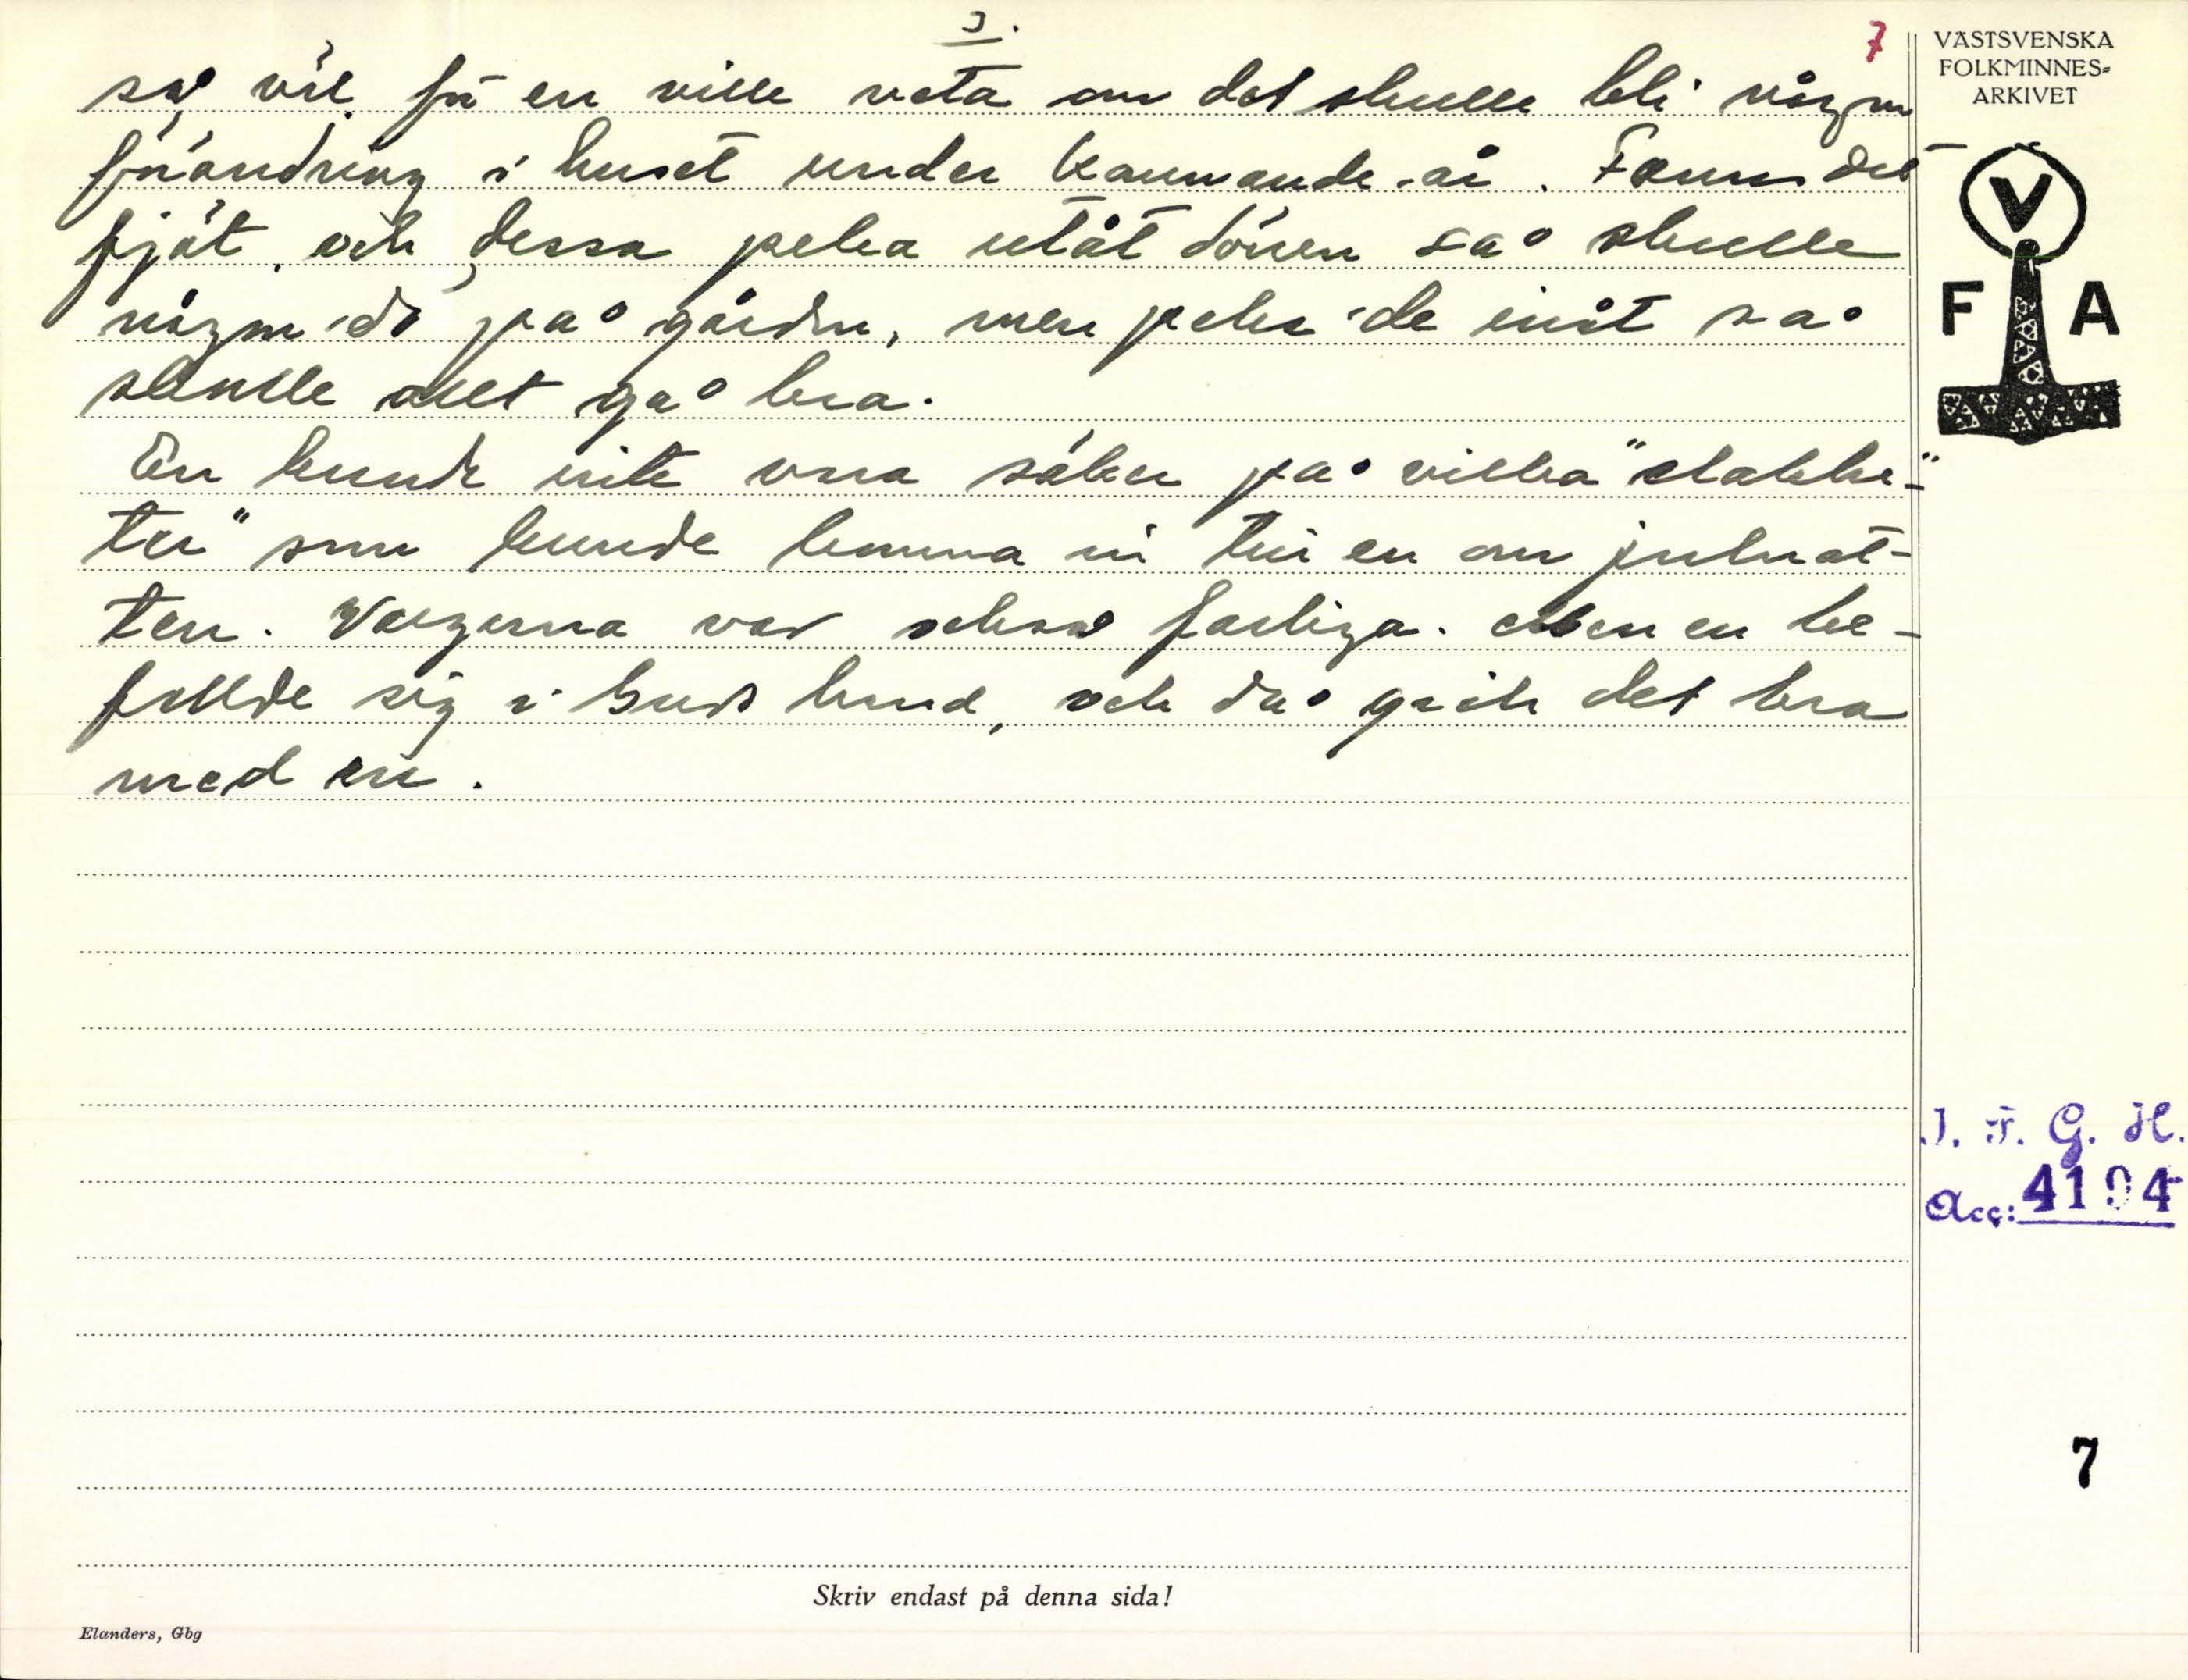 3.
7
så väl för en ville veta om det skulle bli någon
förändring i huset under kommande år. Fanns det
fjät, och dessa peka utåt dören så skulle
någon dö på gården, men peka de inåt så
skulle allt gå bra.
En kunde inte vara säker på vilka "
ter" som kunde komma in till en om julnat-
ten. Vargarna var också farliga. Men en be-
fallde sig i Guds hand, och då gick det bra
med en.
VÄSTSVENSKA
FOLKMINNES-
ARKIVET
V
F A
I. F. G. H.
Acc: 4194
7
Skriv endast på denna sida!
Elanders, Gbg